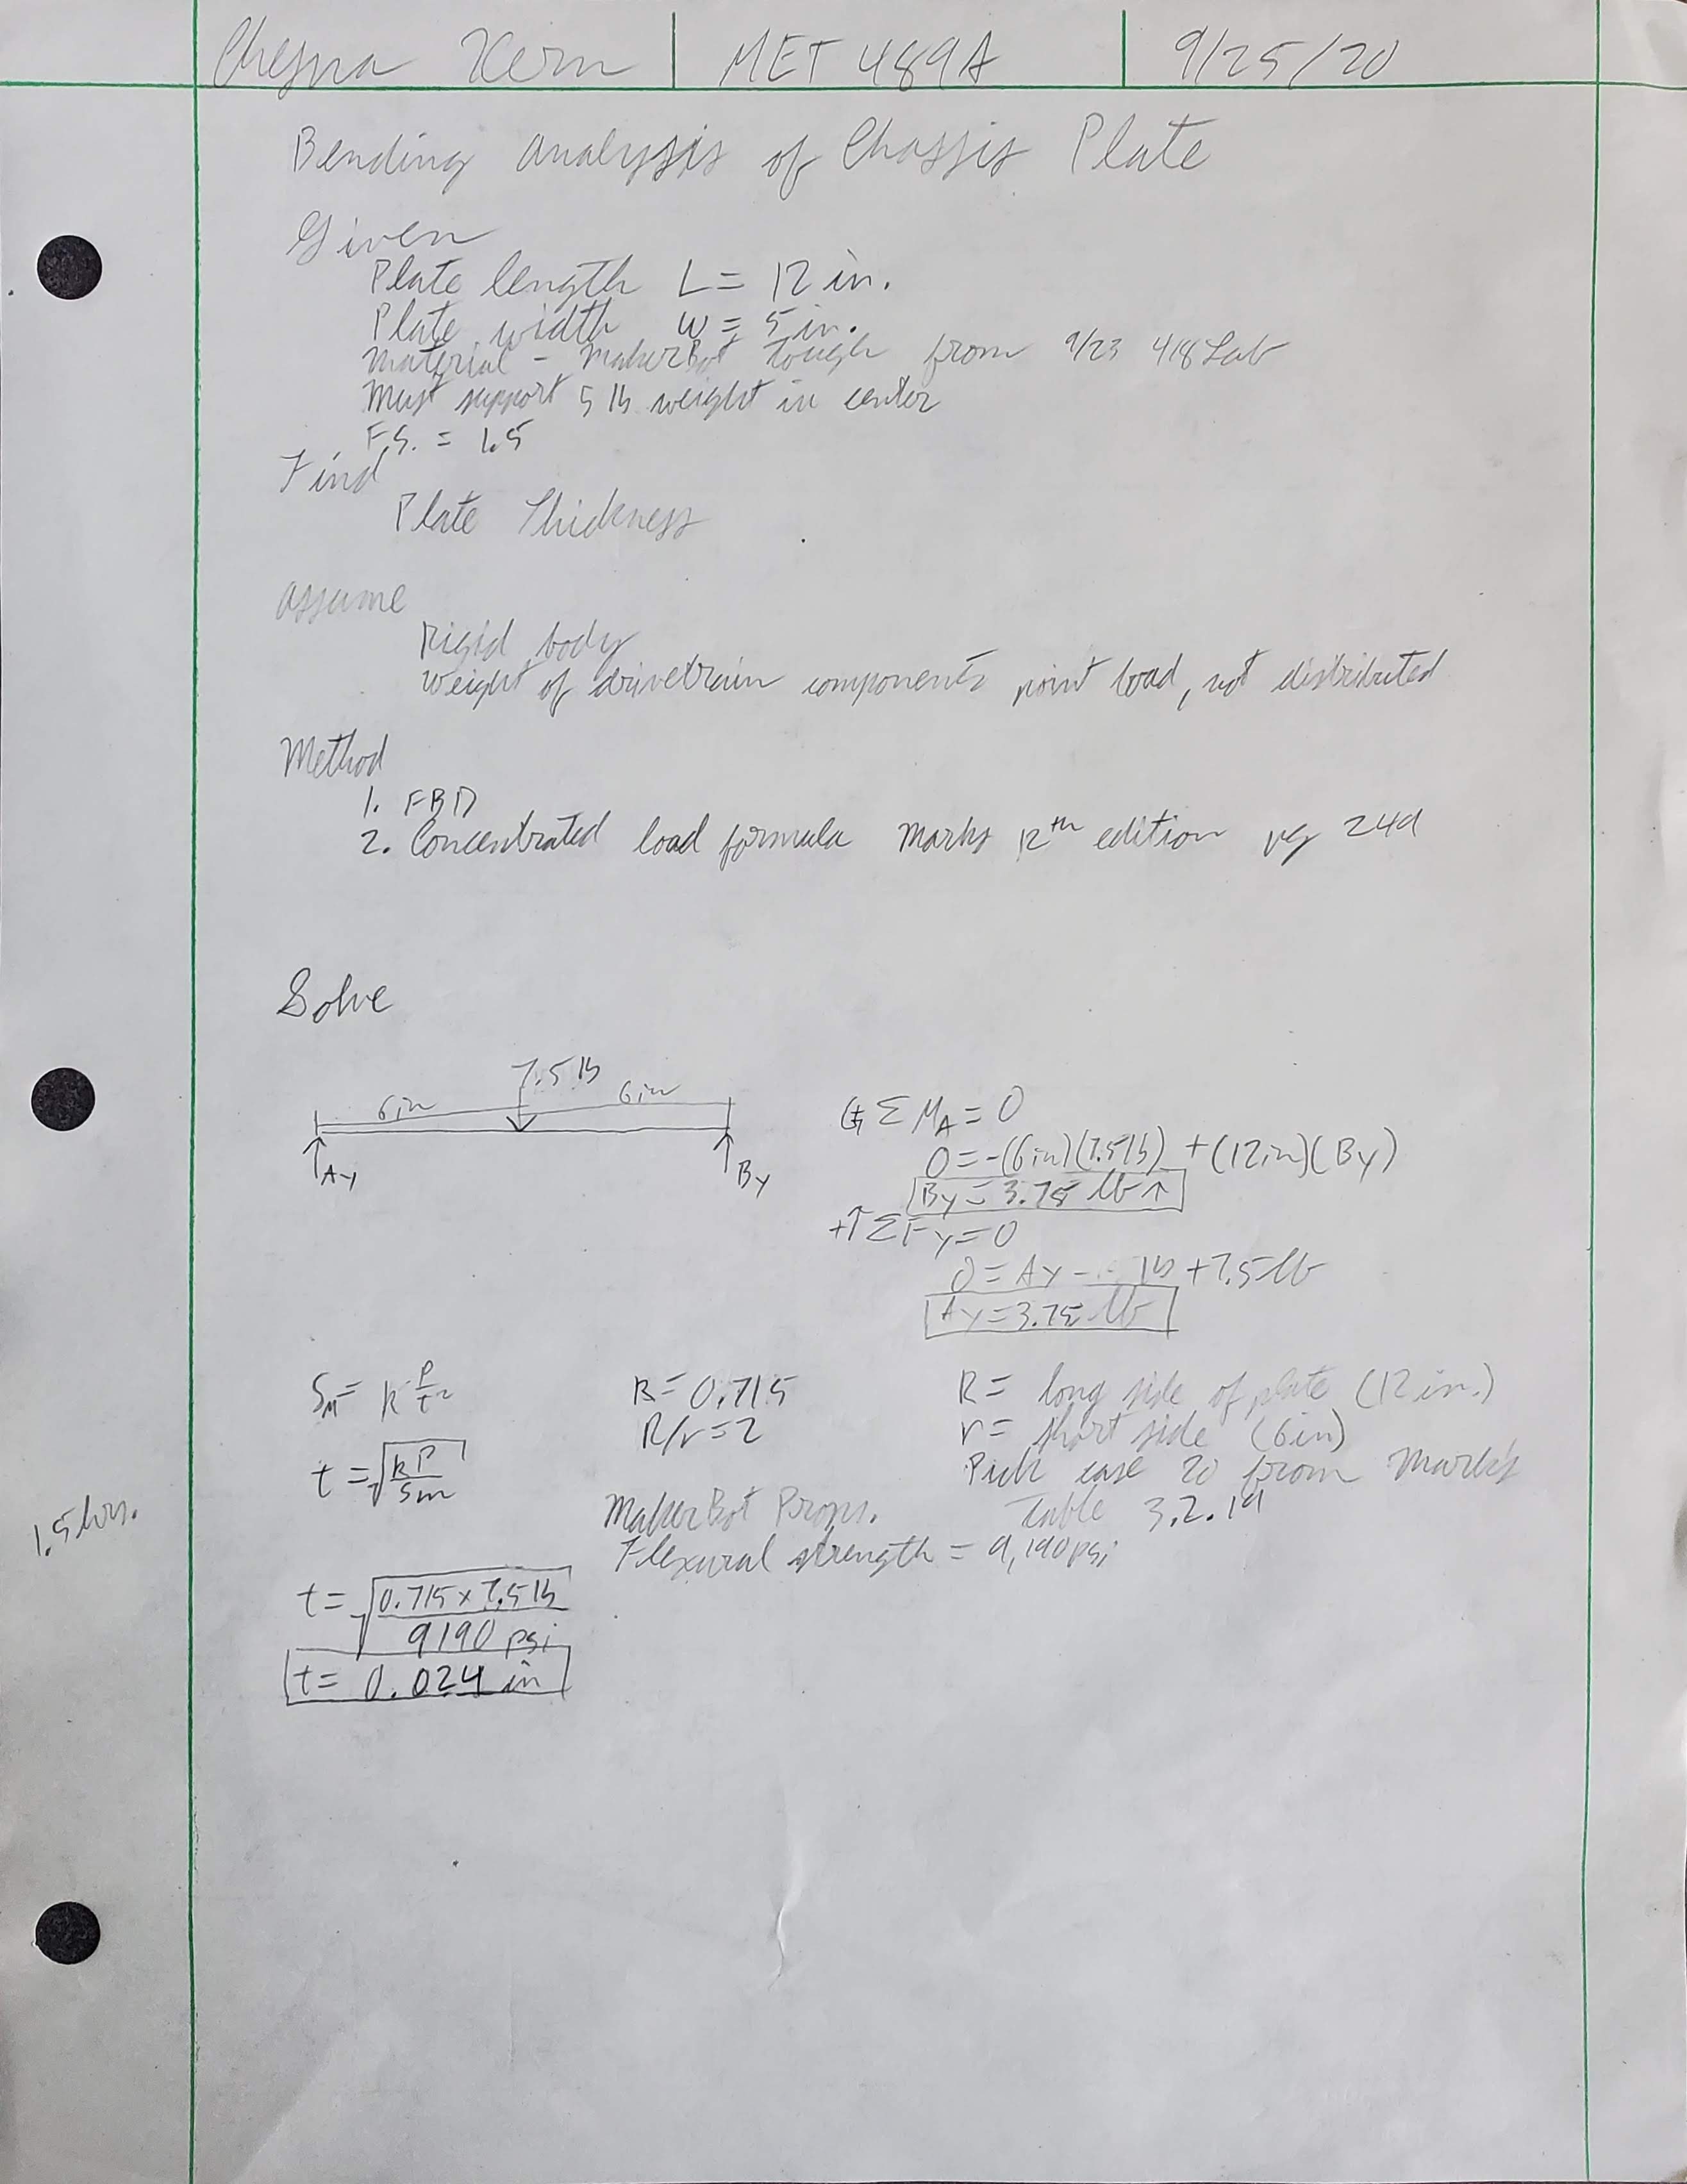 Kern | MET 489A | 9/25/20
Bending analysis of Chassis Plate
Given
Plate length L = 12 in.
Plate width w = 5 in.
Material - MakerBot tough from 9/23 418 Lab
Must support 5 lb weight in center
F.S. = 1.5
Find
Plate Thickness
Assume
Rigid body
weight of drivetrain components point load, not distributed
Method
1. FBD
2. Concentrated load formula Marks 12th edition pg 249
Solve
7.5 lb
6in 6in
Ay By
↺+ ΣM_A = 0
0 = -(6in)(7.5lb) + (12in)(By)
By = 3.75 lb ↑
+↑ΣFy = 0
0 = Ay - lb + 7.5 lb
Ay = 3.75 lb
S_M = k P/t² k = 0.715 R = long side of plate (12 in.)
R/r = 2 r = short side (6in)
t = √(kP/Sm) Pick case 20 from Mark's
MakerBot Props. Table 3.2.19
1.5 hrs.
Flexural strength = 9,190 psi
t = √(0.715 x 7.5 lb / 9190 psi)
t = 0.024 in